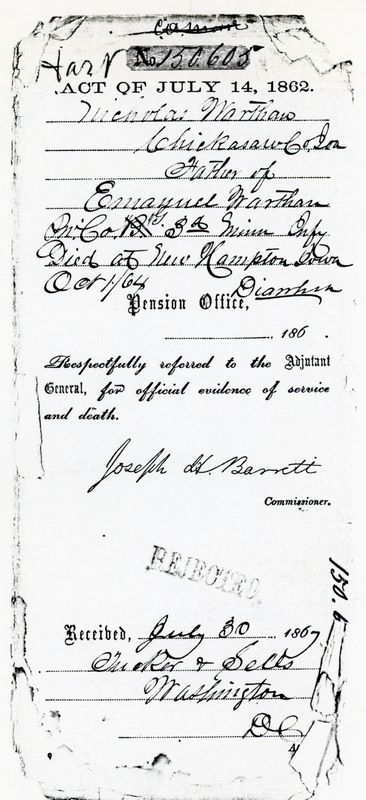 Hart
No 150.605
ACT OF JULY 14, 1862.
Nicholas Warthan
Chickasaw Co, Ioa
Father of
Emanuel Warthan
Co. 3d Minn Infy
Died at New Hampton Iowa
Oct 1/64 Diarrhea
Pension Office,
, 186 .
Respectfully referred to the Adjutant
General, for official evidence of service
and death.
Joseph H. Barrett
Commissioner.
REJECTED.
150.6
Received, July 30, 1867
Tucker & Sells
Washington
DC